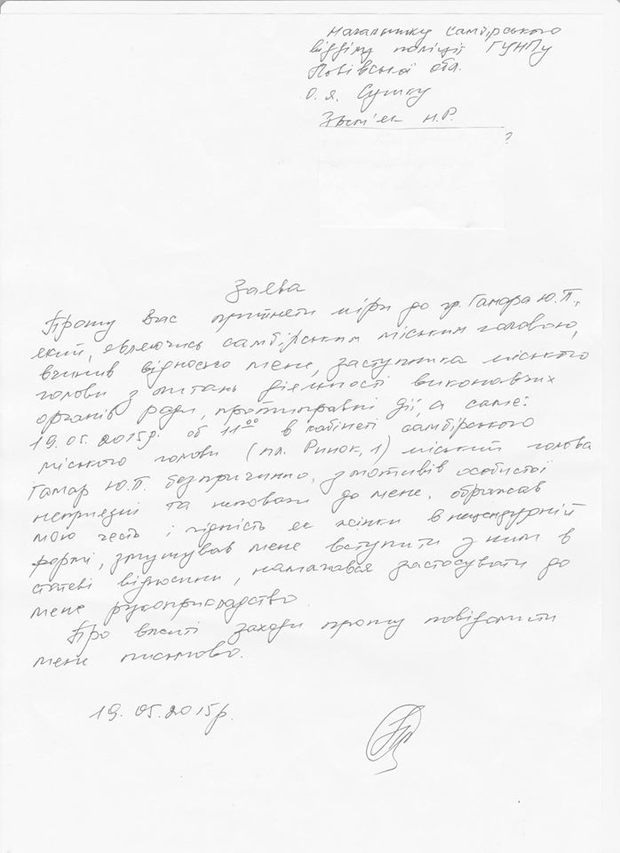 Начальнику Самбірського
відділу поліції ГУНПу
Львівської обл.
О. Я. Сушку
Н.Р.
?
Заява
Прошу Вас прийняти міри до гр. Гамара Ю.П.,
який, являючись самбірським міським головою,
вчинив відносно мене, заступника міського
голови з питань діяльності виконавчих
органів ради, протиправні дії, а саме:
19.05.2015р. об 11⁰⁰ в кабінеті самбірського
міського голови (пл. Ринок, 1) міський голова
Гамар Ю.П. безпричинно, з мотивів особистої
неприязні та неповаги до мене, ображав
мою честь і гідність як жінки в нецензурній
формі, змушував мене вступити з ним в
статеві відносини, намагався застосувати до
мене рукоприкладство.
Про вжиті заходи прошу повідомити
мене письмово.
19.05.2015р.